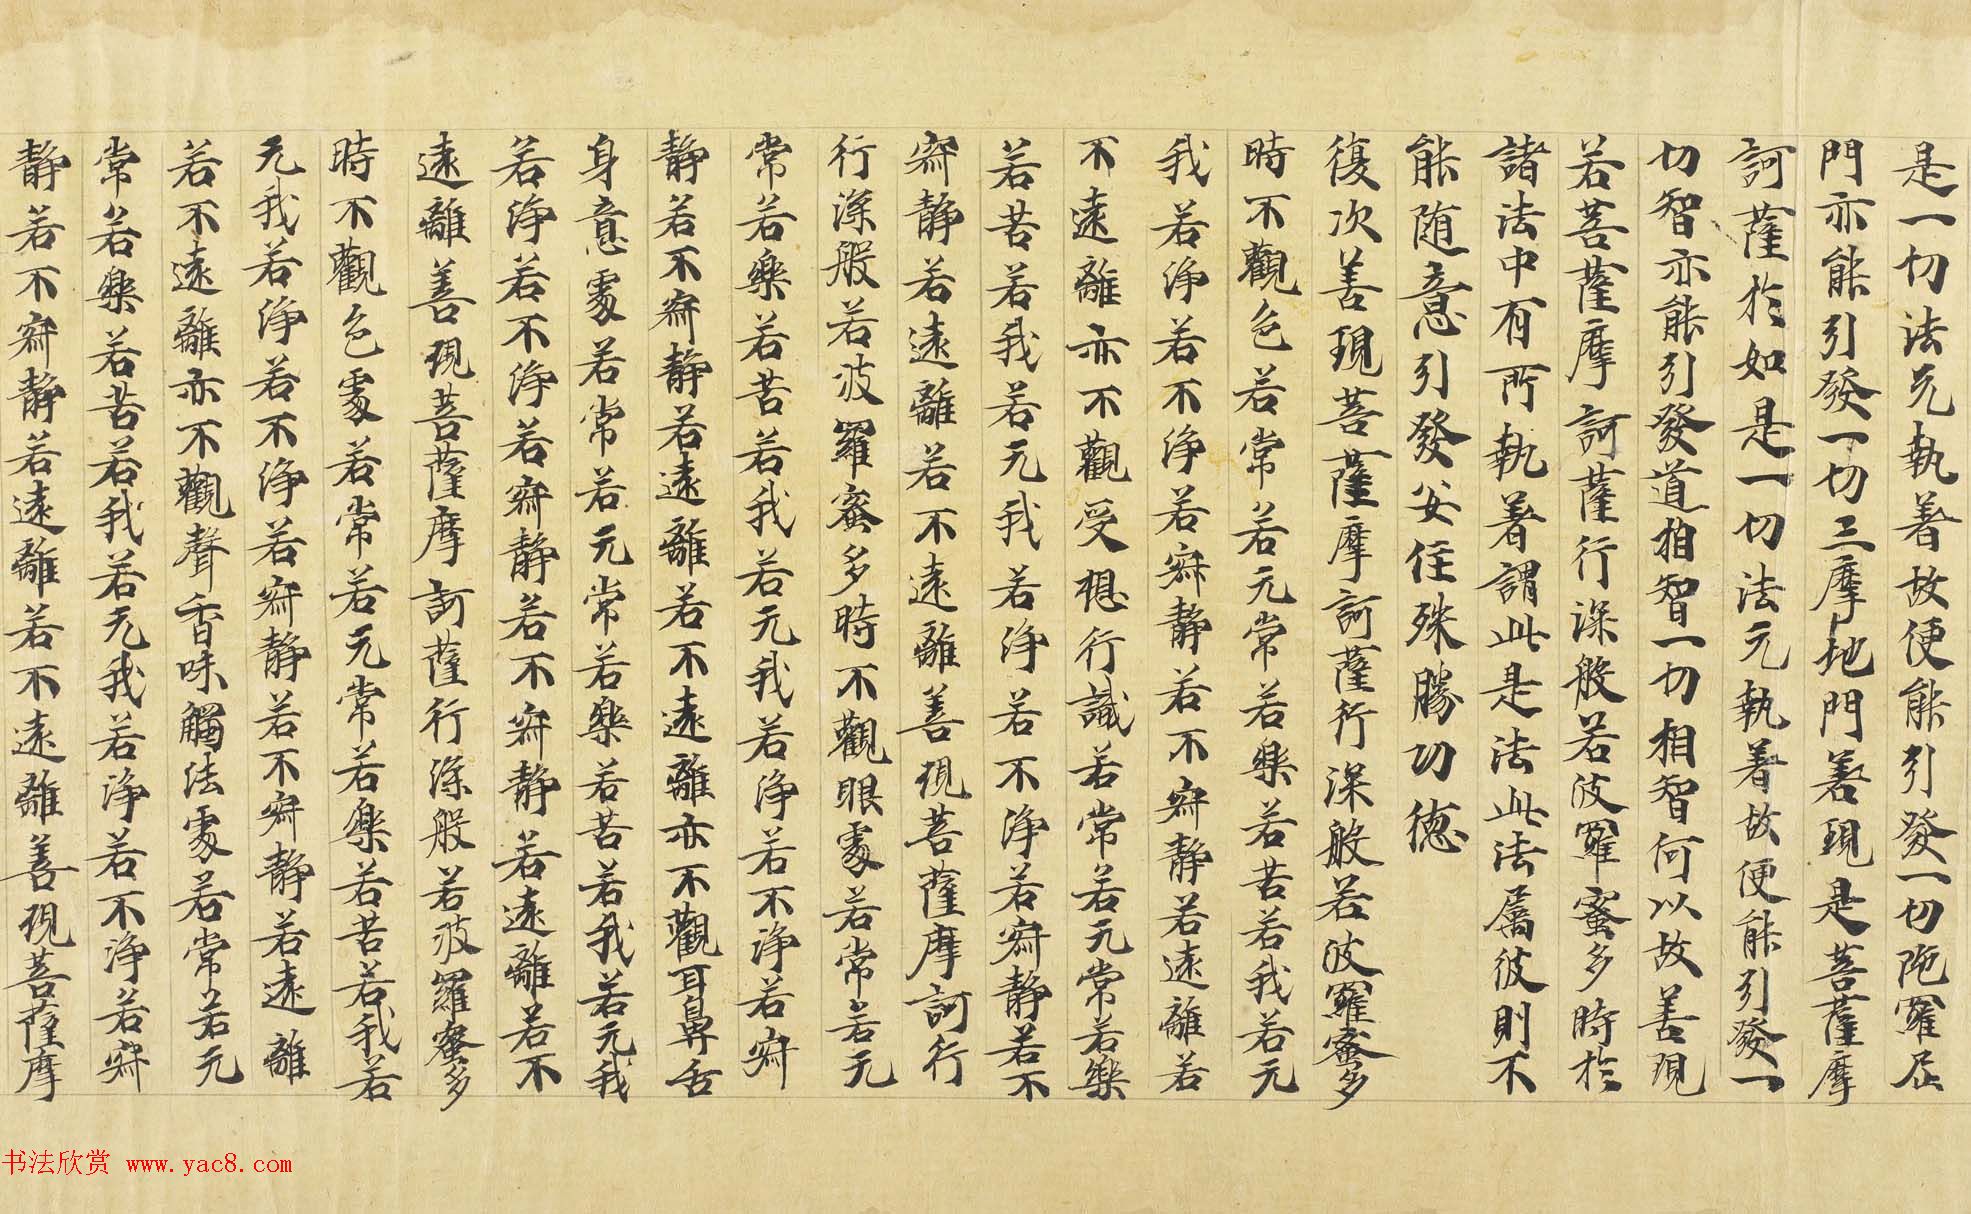 是一切法无執著故便能引發一切陁羅尼
門亦能引發一切三摩地門善現是菩薩摩
訶薩於如是一切法无執著故便能引發一
切智亦能引發道相智一切相智何以故善現
若菩薩摩訶薩行深般若波羅蜜多時於
諸法中有所執著謂此是法此法屬彼則不
能随意引發安住殊勝功德
復次善現菩薩摩訶薩行深般若波羅蜜多
時不觀色若常若无常若樂若苦若我若无
我若淨若不淨若寂静若不寂静若遠離若
不遠離亦不觀受想行識若常若无常若樂
若苦若我若无我若淨若不淨若寂静若不
寂静若遠離若不遠離善現菩薩摩訶行
行深般若波羅蜜多時不觀眼處若常若无
常若樂若苦若我若无我若淨若不淨若寂
静若不寂静若遠離若不遠離亦不觀耳鼻舌
身意處若常若无常若樂若苦若我若无我
若淨若不淨若寂静若不寂静若遠離若不
遠離善現菩薩摩訶薩行深般若波羅蜜多
時不觀色處若常若无常若樂若苦若我若
无我若淨若不淨若寂静若不寂静若遠離
若不遠離亦不觀聲香味觸法處若常若无
常若樂若苦若我若无我若淨若不淨若寂
静若不寂静若遠離若不遠離善現菩薩摩
书法欣赏 www.yac8.com